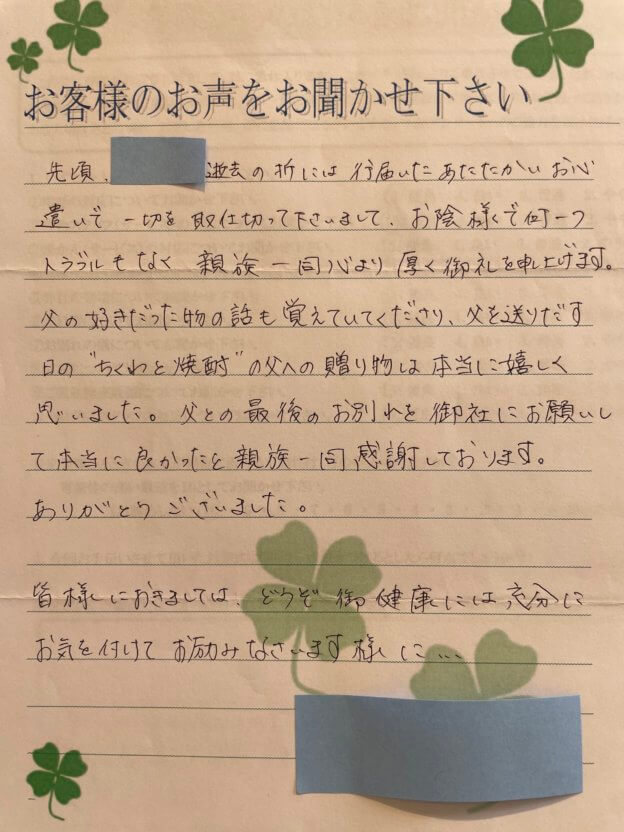 お客様のお声をお聞かせ下さい
先頃、逝去の折には行届いたあたたかいお心
遣いで一切を取仕切って下さいまして、お陰様で何一つ
トラブルもなく親族一同心より厚く御礼を申上げます。
父の好きだった物の話も覚えていてくださり、父を送りだす
日の"ちくわと焼酎"の父への贈り物は本当に嬉しく
思いました。父との最後のお別れを御社にお願いし
て本当に良かったと親族一同感謝しております。
ありがとうございました。
皆様におきましては、どうぞ御健康には充分に
お気を付けてお励みなさいます様に…